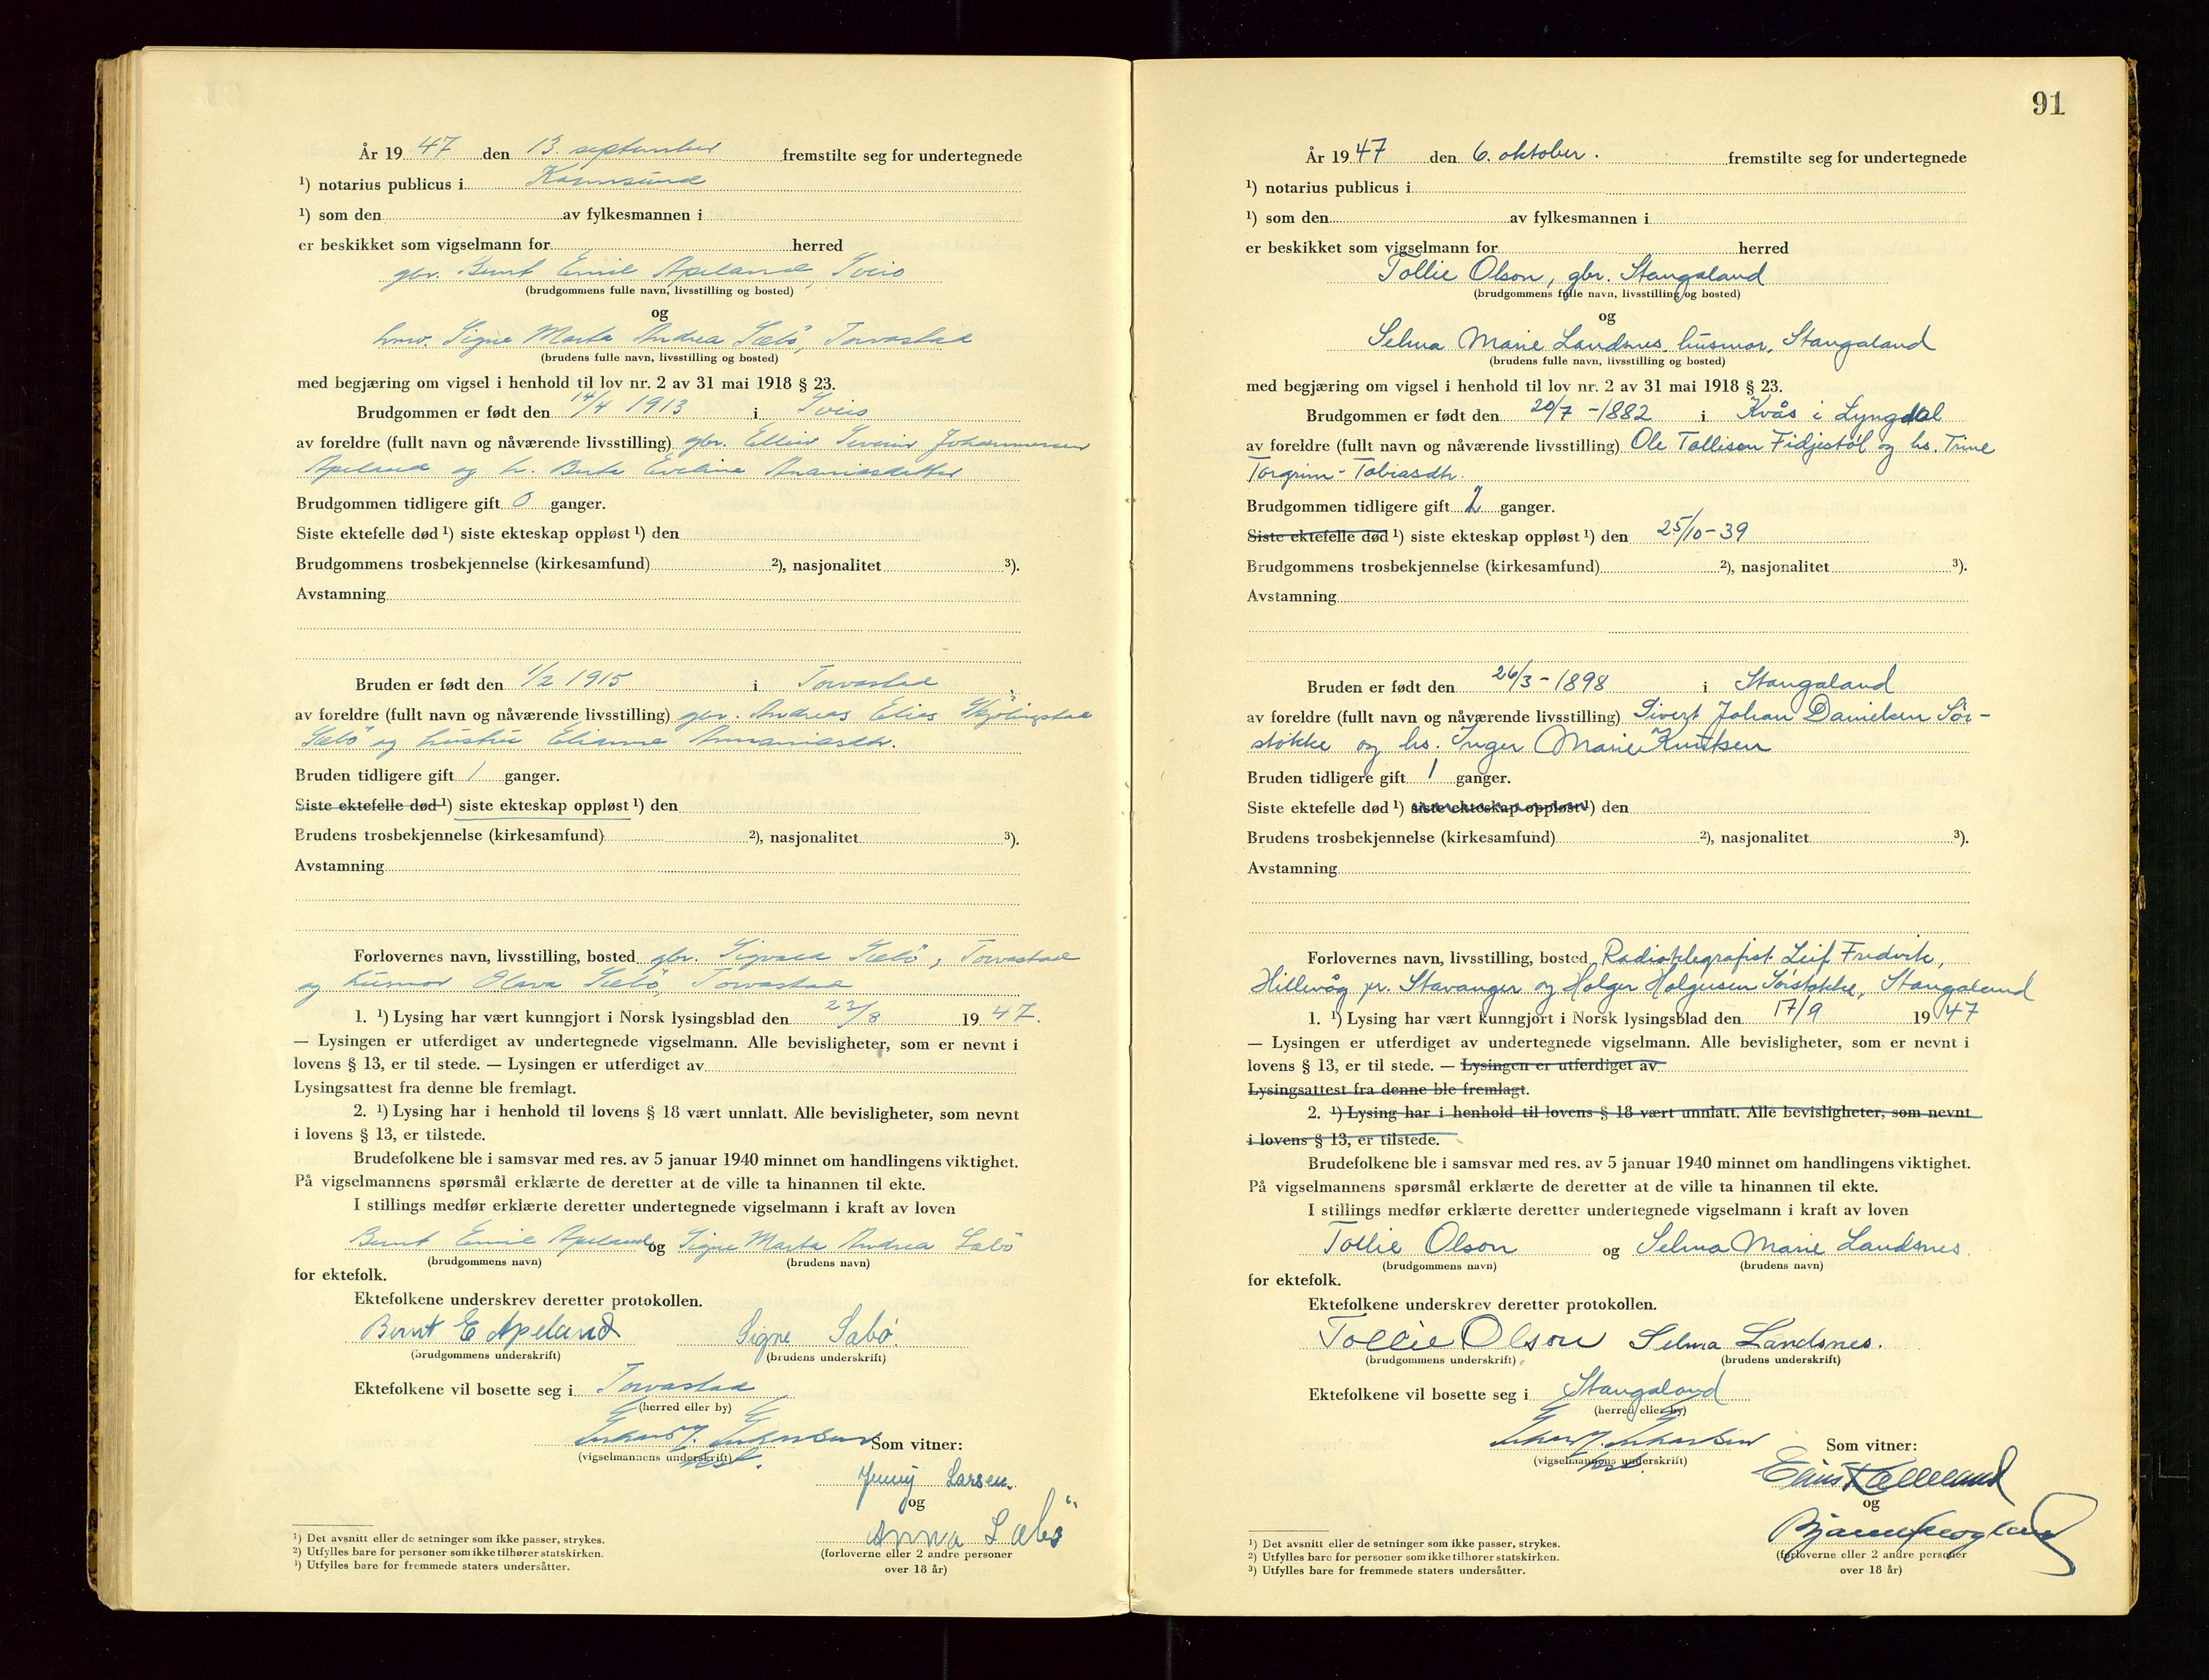 År 19 47 den 13. september fremstilte seg for undertegnede
¹) notarius publicus i Karmsund
¹) som den av fylkesmannen i
er beskikket som vigselmann for herred
gbr. Bernt Emil Apeland, Sveio
(brudgommens fulle navn, livsstilling og bosted)
og
Signe Marta Andrea Sæbö, Torvastad
(brudens fulle navn, livsstilling og bosted)
med begjæring om vigsel i henhold til lov nr. 2 av 31 mai 1918 § 23.
Brudgommen er født den 14/4 1913 i Sveio
av foreldre (fullt navn og nåværende livsstilling) gbr. Severin Johannessen
Apeland og h. Berta Eveline Ananiasdatter
Brudgommen tidligere gift 0 ganger.
Siste ektefelle død ¹) siste ekteskap oppløst ¹) den
Brudgommens trosbekjennelse (kirkesamfund) ²), nasjonalitet ³).
Avstamning
Bruden er født den 1/2 1915 i Torvastad
av foreldre (fullt navn og nåværende livsstilling) gbr. Andreas Elias
Sæbö og hustru Elianne Annaniasdtr.
Bruden tidligere gift 1 ganger.
Siste ektefelle død ¹) siste ekteskap oppløst ¹) den
Brudens trosbekjennelse (kirkesamfund) ²), nasjonalitet ³).
Avstamning
Forlovernes navn, livsstilling, bosted gbr. Sigvald Sæbö, Torvastad
og husmor Olava Sæbö, Torvastad
1. ¹) Lysing har vært kunngjort i Norsk lysingsblad den 23/8 19 47.
— Lysingen er utferdiget av undertegnede vigselmann. Alle bevisligheter, som er nevnt i
lovens § 13, er til stede. — Lysingen er utferdiget av
Lysingsattest fra denne ble fremlagt.
2. ¹) Lysing har i henhold til lovens § 18 vært unnlatt. Alle bevisligheter, som nevnt
i lovens § 13, er tilstede.
Brudefolkene ble i samsvar med res. av 5 januar 1940 minnet om handlingens viktighet.
På vigselmannens spørsmål erklærte de deretter at de ville ta hinannen til ekte.
I stillings medfør erklærte deretter undertegnede vigselmann i kraft av loven
Bernt Emil Apeland og Signe Marta Andrea Sæbö
(brudgommens navn) (brudens navn)
for ektefolk.
Ektefolkene underskrev deretter protokollen.
Bernt E Apeland Signe Sæbö.
(brudgommens underskrift) (brudens underskrift)
Ektefolkene vil bosette seg i Torvastad
(herred eller by)
Som vitner:
(vigselmannens underskrift)
Jenny Larsen.
og
Anna Sæbö
(forloverne eller 2 andre personer
over 18 år)
¹) Det avsnitt eller de setninger som ikke passer, strykes.
²) Utfylles bare for personer som ikke tilhører statskirken.
³) Utfylles bare for fremmede staters undersåtter.
91
År 19 47 den 6. oktober. fremstilte seg for undertegnede
¹) notarius publicus i
¹) som den av fylkesmannen i
er beskikket som vigselmann for herred
Tollie Olson, gbr. Stangaland
(brudgommens fulle navn, livsstilling og bosted)
og
Selma Marie Landsnes, husmor, Stangaland
(brudens fulle navn, livsstilling og bosted)
med begjæring om vigsel i henhold til lov nr. 2 av 31 mai 1918 § 23.
Brudgommen er født den 20/7 - 1882 i Kvås i Lyngdal
av foreldre (fullt navn og nåværende livsstilling) Ole Tollisen Fidjestøl og hs. Trine
Torgrim- Tobiasdtr.
Brudgommen tidligere gift 2 ganger.
Siste ektefelle død ¹) siste ekteskap oppløst ¹) den 25/10 - 39
Brudgommens trosbekjennelse (kirkesamfund) ²), nasjonalitet ³).
Avstamning
Bruden er født den 26/3 - 1898 i Stangaland
av foreldre (fullt navn og nåværende livsstilling) Sivert Johan Danielsen Sör-
stokke og hs. Inger Marie Knutsen
Bruden tidligere gift 1 ganger.
Siste ektefelle død ¹) siste ekteskap oppløst ¹) den
Brudens trosbekjennelse (kirkesamfund) ²), nasjonalitet ³).
Avstamning
Forlovernes navn, livsstilling, bosted Radiotelegrafist Leif Fredvik,
Hillevåg pr. Stavanger og Holger Holgersen Sørstokke, Stangaland
1. ¹) Lysing har vært kunngjort i Norsk lysingsblad den 17/9 19 47
— Lysingen er utferdiget av undertegnede vigselmann. Alle bevisligheter, som er nevnt i
lovens § 13, er til stede. — Lysingen er utferdiget av
Lysingsattest fra denne ble fremlagt.
2. ¹) Lysing har i henhold til lovens § 18 vært unnlatt. Alle bevisligheter, som nevnt
i lovens § 13, er tilstede.
Brudefolkene ble i samsvar med res. av 5 januar 1940 minnet om handlingens viktighet.
På vigselmannens spørsmål erklærte de deretter at de ville ta hinannen til ekte.
I stillings medfør erklærte deretter undertegnede vigselmann i kraft av loven
Tollie Olson og Selma Marie Landsnes
(brudgommens navn) (brudens navn)
for ektefolk.
Ektefolkene underskrev deretter protokollen.
Tollie Olson Selma Landsnes.
(brudgommens underskrift) (brudens underskrift)
Ektefolkene vil bosette seg i Stangaland
(herred eller by)
Som vitner:
(vigselmannens underskrift)
og
(forloverne eller 2 andre personer
over 18 år)
¹) Det avsnitt eller de setninger som ikke passer, strykes.
²) Utfylles bare for personer som ikke tilhører statskirken.
³) Utfylles bare for fremmede staters undersåtter.